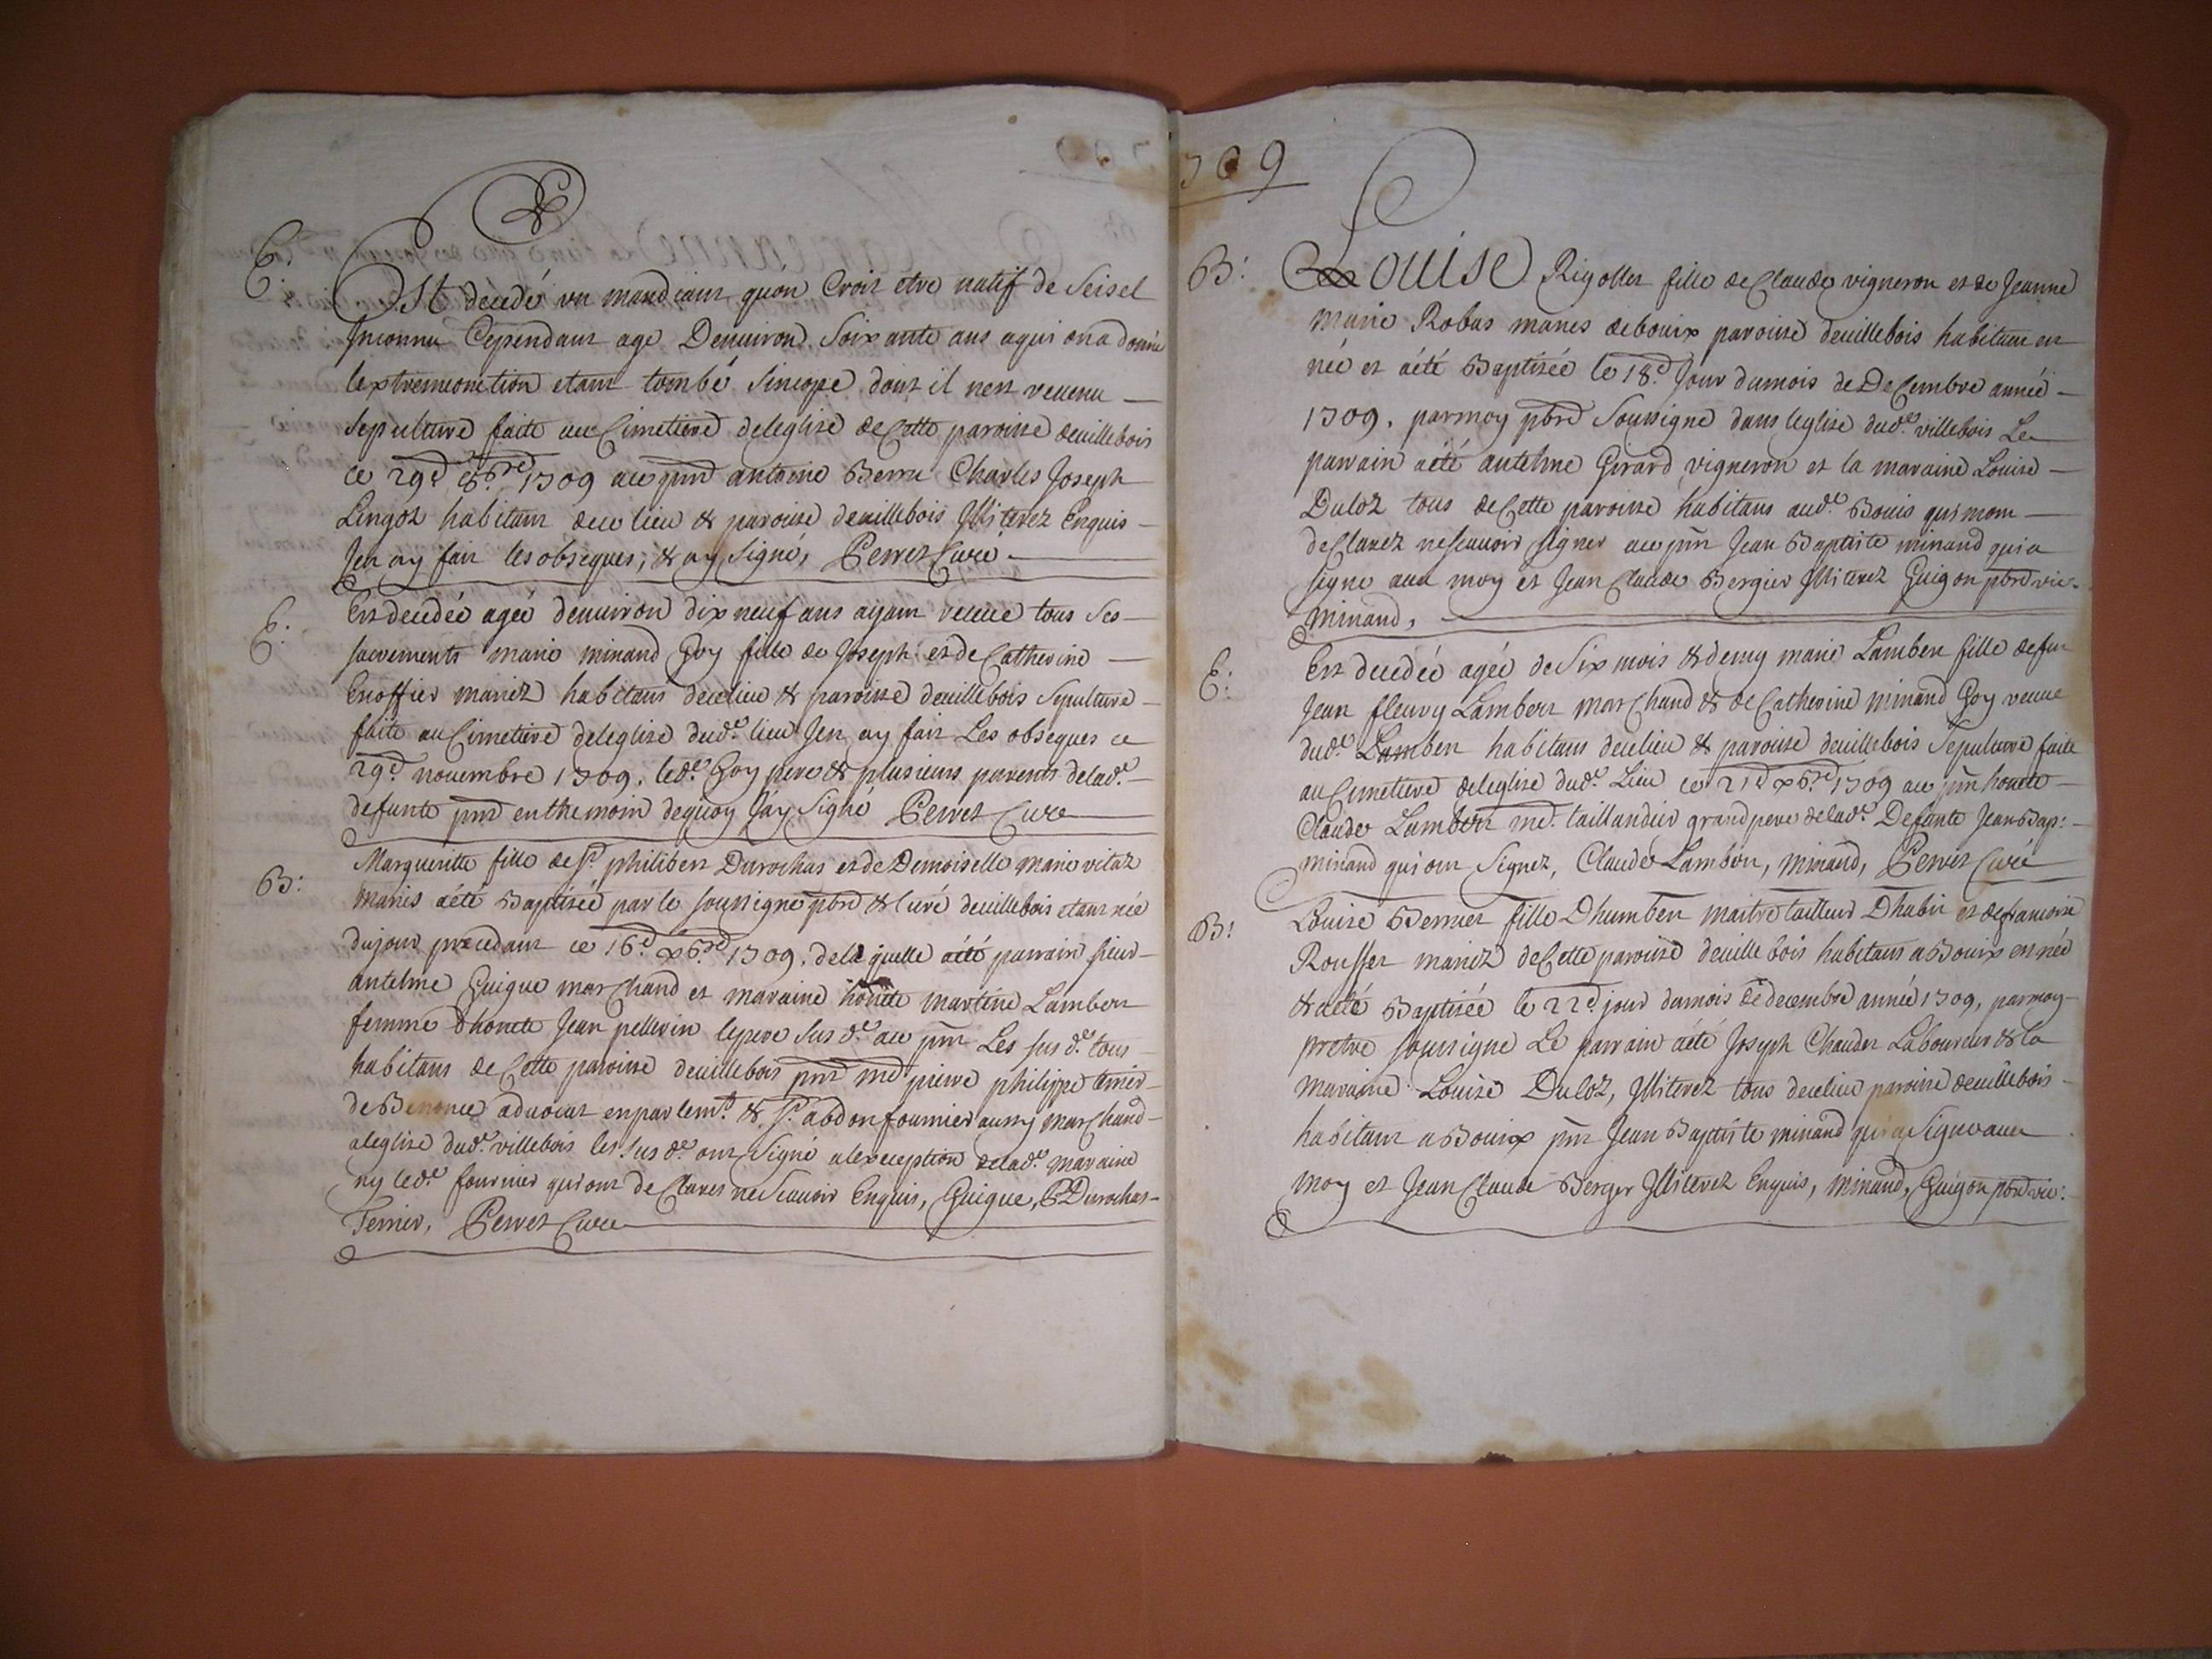 E:
Est decedé un mandiant quon Croit etre natif de Seisel
Inconnu Cependant age Denuiron Soixante ans aqui on a donné
lextremeonction etant tombé Sincope dont il nest reuenu
Sepulture faite au Cimetiere deleglise de Cette paroisse deuillebois
ce 29e 1709 au antoine Berru Charles Joseph
Lingot habitant dece lieu & paroisse deuillebois Illiterez Enquis
Jen ay fait les obseques, & ay Signé, Perret Curé
E:
Est decedée agée denuiron dix neuf ans ayant receue tous ses
sacrements marie minand Goy fille de Joseph et de Catherine
Enoffier mariez habitans decelieu & paroisse deuillebois Sepulture
faite au Cimetiere deleglise dude. lieu Jen ay fait Les obseques ce
29e nouembre 1709. lede. Goy pere & plusieurs parents delade.
defunte pnt enthemoin dequoy Jáy Signé Perret Cure
B:
Margueritte fille de sr. philibert Durochas et de Demoiselle marie vitat
mariés aété Baptisée par le soussigné pbre & Curé deuillebois etant née
dujour precedant ce 16e. xbre 1709. dela quelle aété parrain sieur
antelme Guigue marchand et maraine honete martine Lambert
femme dhonete Jean pellerin lepere Sus de. au pnt Les sus de. tous
habitans de Cette paroisse deuillebois pnt me pierre philippe
de aduocat enparlemt. & sr. abdon fournier aussy marchand
aleglise dude. villebois les sus de. ont Signé alexception delade. maraine
ny lede. fournier qui ont declarés ne Scauoir Enquis, Guigue, P Durochas
Ternier, Perret Cure
1709
B:
Louise Rigollet fille de Claude vigneron et de Jeanne
marie Robas mariés debouix paroisse deuillebois habitant est
née et aété Baptisée le 18e. Jour dumois de Decembre année
1709. parmoy pbre Soussigné dans leglise dude. villebois Le
parrain aété antelme Girard vigneron et la maraine Louise
Duloz tous de Cette paroisse habitans aude. Bouis qui mont
declarez nescauoir signer au pnt Jean Baptiste minand qui a
signe auec moy et Jean Claude Bergier Illiterez Guigon pbre vic.
minand,
E:
Est decedée agée de Six mois & demy marie Lambert fille defut
Jean fleury Lambert marchand & de Catherine minand Goy veuue
dude. Lambert habitans decelieu & paroisse deuillebois Sepulture faite
au Cimetiere deleglise dude. Lieu ce 21e xbre 1709 au pnt honete
Claude Lambert md. taillandier grand pere delade. Defunte Jean Bap:
minand qui ont Signez, Claude Lambert, minand, Perret Curé
B:
Louise Bernier fille Dhumbert maitre tailleur Dhabit et defrancoise
Rousset mariez de Cette paroisse deuille bois habitans a Bouix est née
& aété Baptisée le 22e. jour dumois de decembre année 1709, parmoy
pretre soussigné Le parrain aété Joseph Chaudet Laboureur & la
maraine Louise Duloz, Illiterez tous decelieu paroisse deuillebois
habitant a Bouix pnt Jean Baptiste minand qui a Signe auec
moy et Jean Claude Berger Illiterez Enquis, minand, Guigon pbre vic: